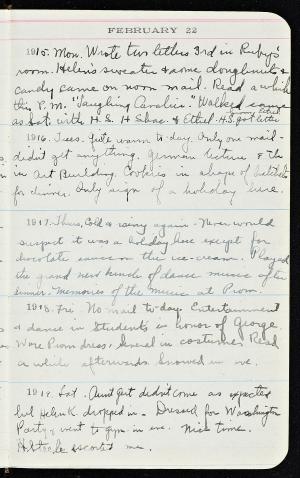 FEBRUARY 22
1915. Mon. Wrote two letters 3rd in Ruby's
room. Helen's sweater & some doughnuts &
candy came on noon mail. Read a while
this P.M. "Laughing Cavalier." Walked
as Sat. with H. S. H & Ethel. H.S. got letter
1916. Tues. Quite warm to-day. Only one mail -
didn't get anything. German lecture & Tha
in Art Building. Cookies in shape of hatchets
for dinner. Only sign of a holiday here.
1917. Thurs. Cold & rainy again. Never would
suspect it was a holiday here except for
chocolate sauce on the ice-cream. Played
the grand new kinds of dance music after
dinner. Memories of the music at Prom.
1918. Fri. No mail to-day. Entertainment
& dance in Students in honor of George.
Wore Prom dress. in costumes. Read
a while afterwards. Snowed in eve.
1919. Sat. Aunt Gert didn't come as expected
but Helen K dropped in. Dressed for Washington
Party & went to gym in eve. Nice time.
escorted me.